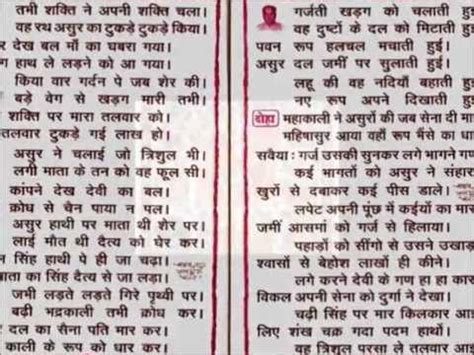 तभी शक्ति ने अपनी शक्ति चला।
वह रथ असुर का टुकड़े टुकड़े किया।
देख बल माँ का घबरा गया।
हाथ ले लड़ने को आ गया।
किया वार गर्दन पे जब शेर की।
बड़े वेग से खड़ग मारी तभी।
शक्ति पर मारा तलवार को।
तलवार टुकड़े गई लाख हो।
असुर ने चलाई जो त्रिशूल भी।
लगी माता के तन को वह फूल सी।
कांपने देख देवी का बल।
क्रोध से चैन पाया न पल।
असुर हाथी पर माता थी शेर पर।
लाई मौत थी दैत्य को घेर कर।
सिंह हाथी पे ही जा चढ़ा।
माता का सिंह दैत्य से जा लड़ा।
जभी लड़ते लड़ते गिरे पृथ्वी पर।
बढ़ी भद्रकाली तभी क्रोध कर।
दल का सैना पति मार कर।
काली के रूप को धार कर।
गर्जती खड़ग को चलाती
वह दुष्टों के दल को मिटाती हुई।
पवन रूप हलचल मचाती हुई।
असुर दल जमीं पर सुलाती हुई।
लहू की वह नदियाँ बहाती हुई।
नए रूप अपने दिखाती
दोहा महाकाली ने असुरों की जब सेना दी मार
महिषासुर आया वहाँ रूप भैंसे का
सवैया: गर्ज उसकी सुनकर लगे भागने
कई भागतों को असुर ने संहार
खुरों से दबाकर कई पीस डाले।
लपेट अपनी पूंछ में कईयों का
जमीं आसमां को गर्ज से हिलाया।
पहाड़ों को सींगो से उसने
श्वासों से बेहोश लाखों ही कीने।
लगे करने देवी के गण हा हा
विकल अपनी सेना को दुर्गा ने देखा।
चढ़ी सिंह पर मार किलकार
लिए शंख चक्र गदा पदम हाथों।
वह त्रिशूल परसा ले तलवार